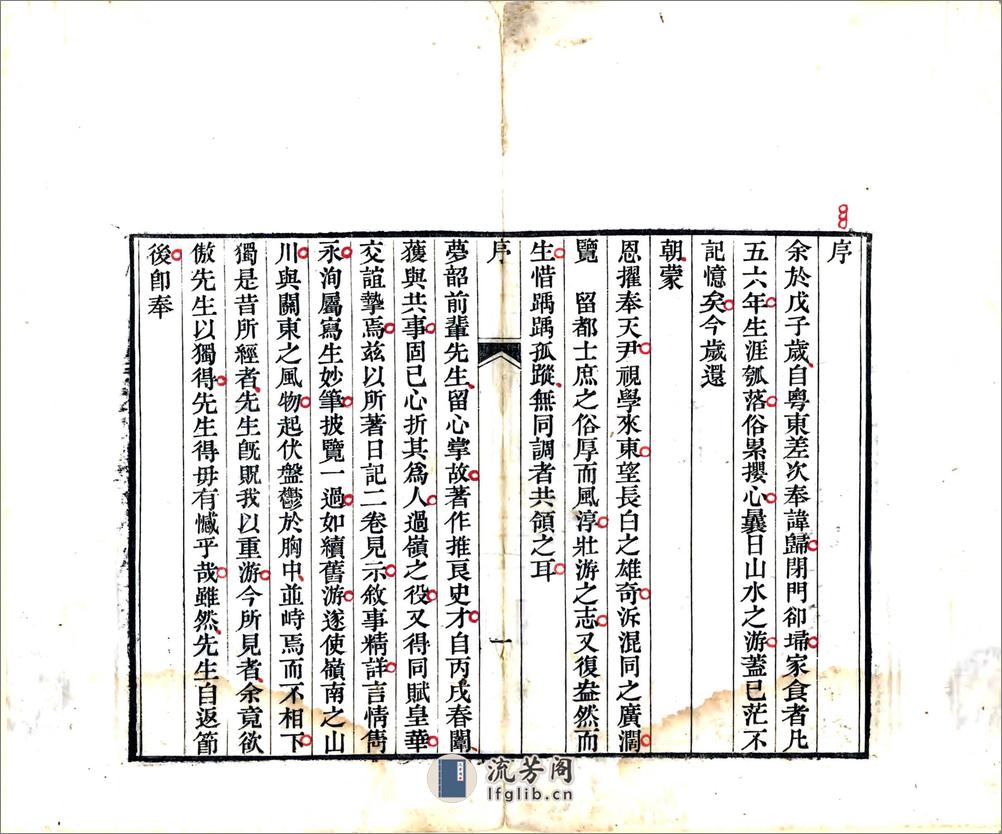 序
余於戊子歲自粵東差次奉諱歸閉門卻埽家食者凡
五六年生涯瓠落俗累攖心曩日山水之游蓋已茫不
記憶矣今歲還
朝蒙
恩擢奉天尹視學來東望長白之雄奇泝混同之廣濶
覽　留都士庶之俗厚而風淳壯游之志又復盎然而
生惜踽踽孤蹤無同調者共領之耳
序　一
夢韶前輩先生留心掌故著作推良史才自丙戌春闈
獲與共事固已心折其爲人過嶺之役又得同賦皇華
交誼摯焉茲以所著日記二卷見示敘事精詳言情雋
永洵屬寫生妙筆披覽一過如續舊游遂使嶺南之山
川與關東之風物起伏盤鬱於胸中並時焉而不相下
獨是昔所經者先生旣貺我以重游今所見者余竟欲
傲先生以獨得先生得毋有憾乎哉雖然先生自返節
後卽奉
流芳阁
lfglib.cn